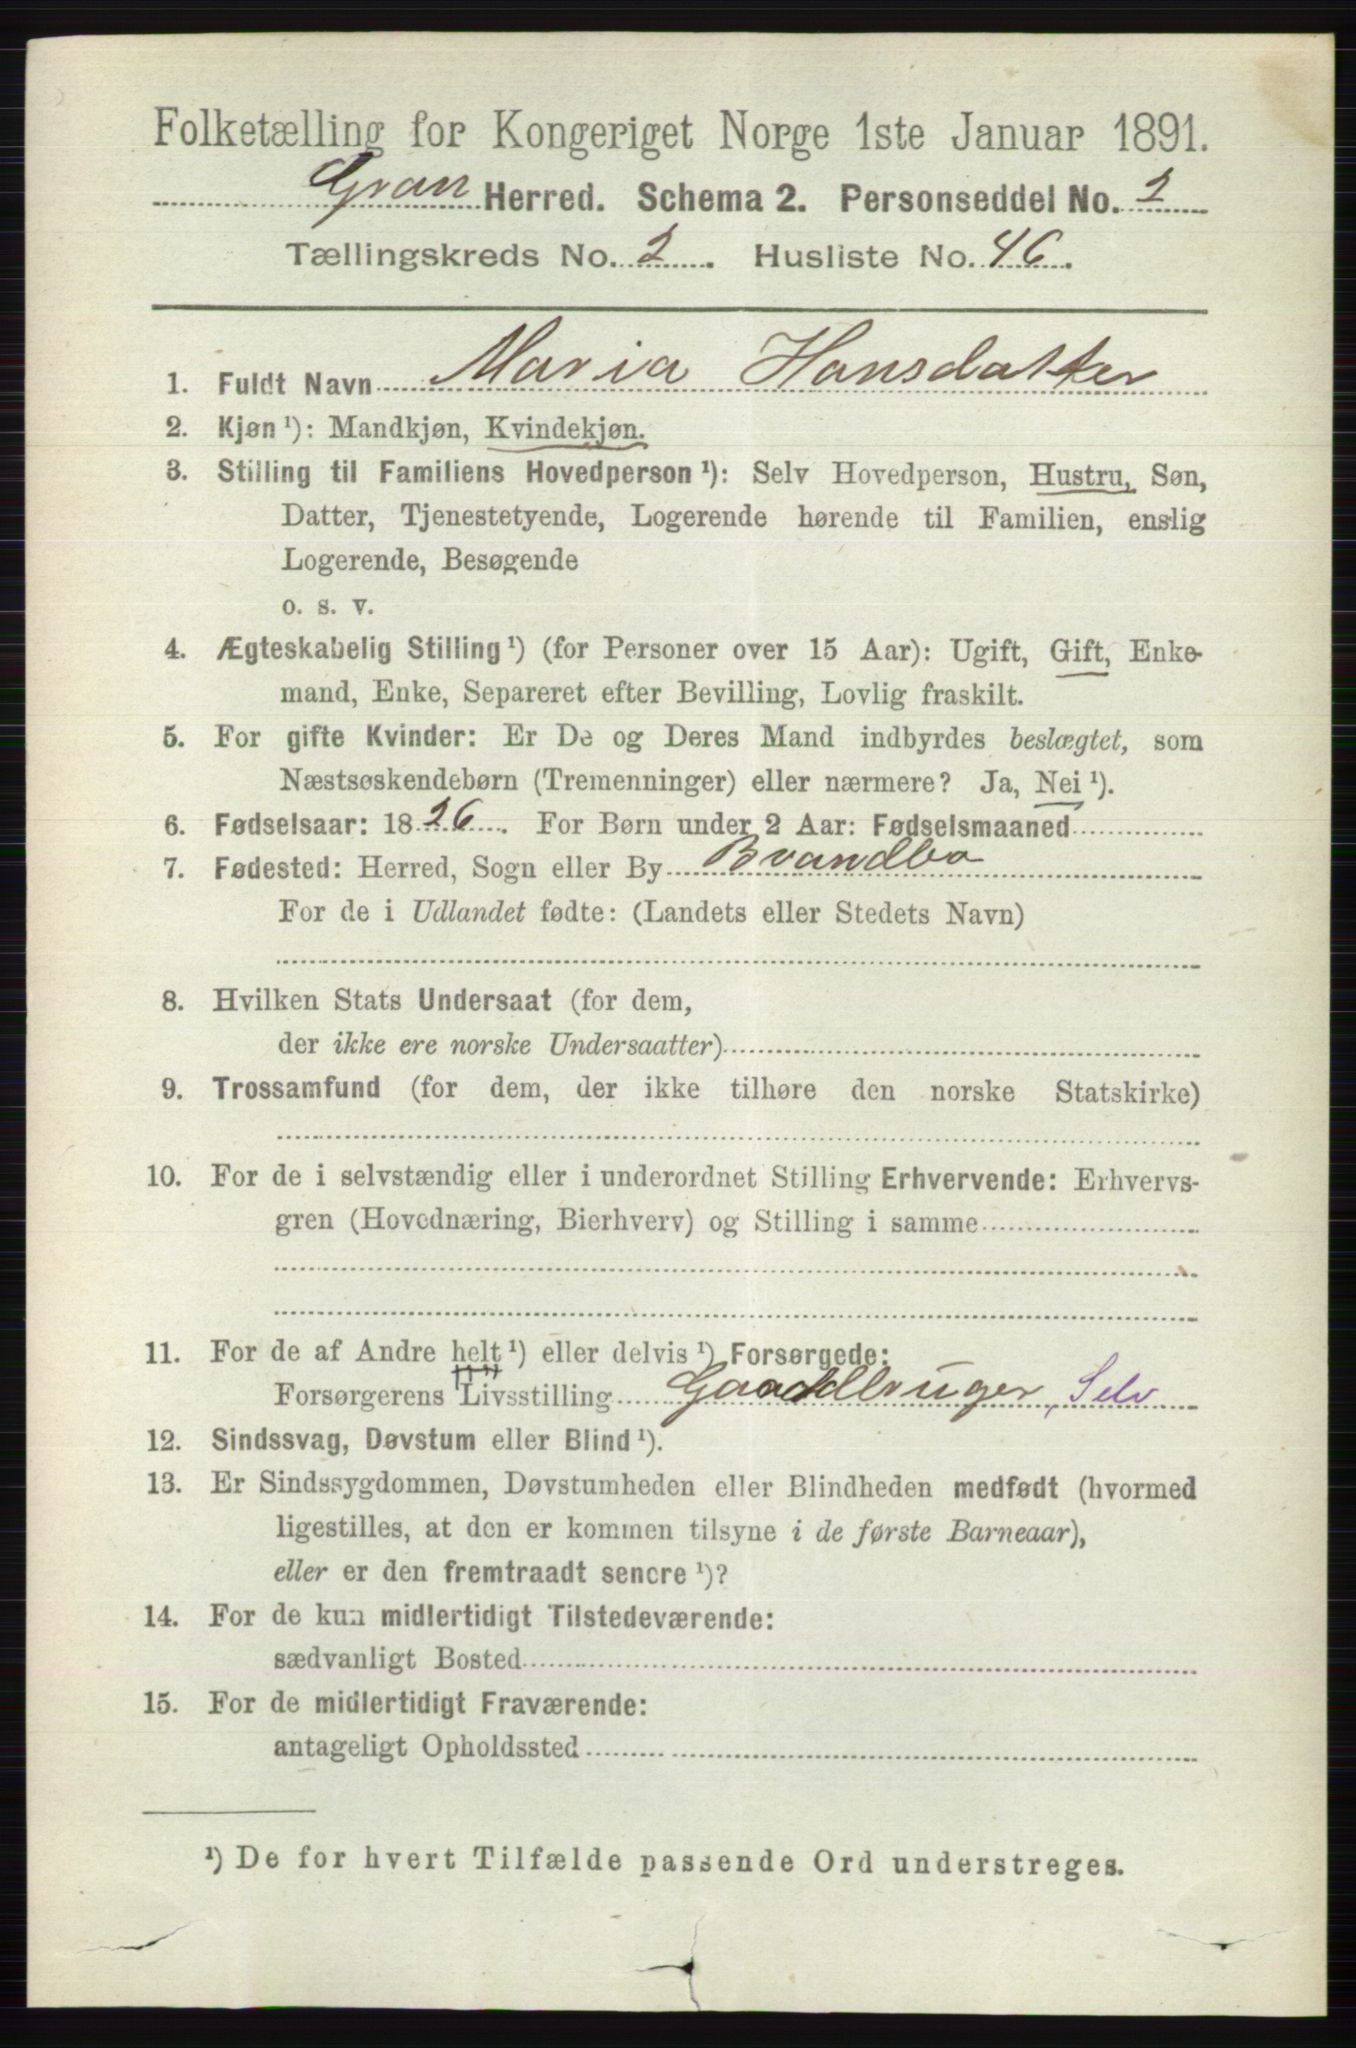 Folketælling for Kongeriget Norge 1ste Januar 1891.
Gran Herred. Schema 2. Personseddel No. 2
Tællingskreds No. 2. Husliste No. 46.
1. Fuldt Navn Maria Hansdatter
2. Kjøn ¹): Mandkjøn, Kvindekjøn.
3. Stilling til Familiens Hovedperson ¹): Selv Hovedperson, Hustru, Søn,
Datter, Tjenestetyende, Logerende hørende til Familien, enslig
Logerende, Besøgende
o. s. v.
4. Ægteskabelig Stilling ¹) (for Personer over 15 Aar): Ugift, Gift, Enke-
mand, Enke, Separeret efter Bevilling, Lovlig fraskilt.
5. For gifte Kvinder: Er De og Deres Mand indbyrdes beslægtet, som
Næstsøskendebørn (Tremenninger) eller nærmere? Ja, Nei ¹).
6. Fødselsaar: 1826. For Børn under 2 Aar: Fødselsmaaned
7. Fødested: Herred, Sogn eller By Brandbo
For de i Udlandet fødte: (Landets eller Stedets Navn)
8. Hvilken Stats Undersaat (for dem,
der ikke ere norske Undersaatter)
9. Trossamfund (for dem, der ikke tilhøre den norske Statskirke)
10. For de i selvstændig eller i underordnet Stilling Erhvervende: Erhvervs-
gren (Hovednæring, Bierhverv) og Stilling i samme
11. For de af Andre helt ¹) eller delvis ¹) Forsørgede:
Forsørgerens Livsstilling Gaardbruger, Selv
12. Sindssvag, Døvstum eller Blind ¹).
13. Er Sindssygdommen, Døvstumheden eller Blindheden medfødt (hvormed
ligestilles, at den er kommen tilsyne i de første Barneaar),
eller er den fremtraadt senere ¹)?
14. For de kun midlertidigt Tilstedeværende:
sædvanligt Bosted
15. For de midlertidigt Fraværende:
antageligt Opholdssted
¹) De for hvert Tilfælde passende Ord understreges.